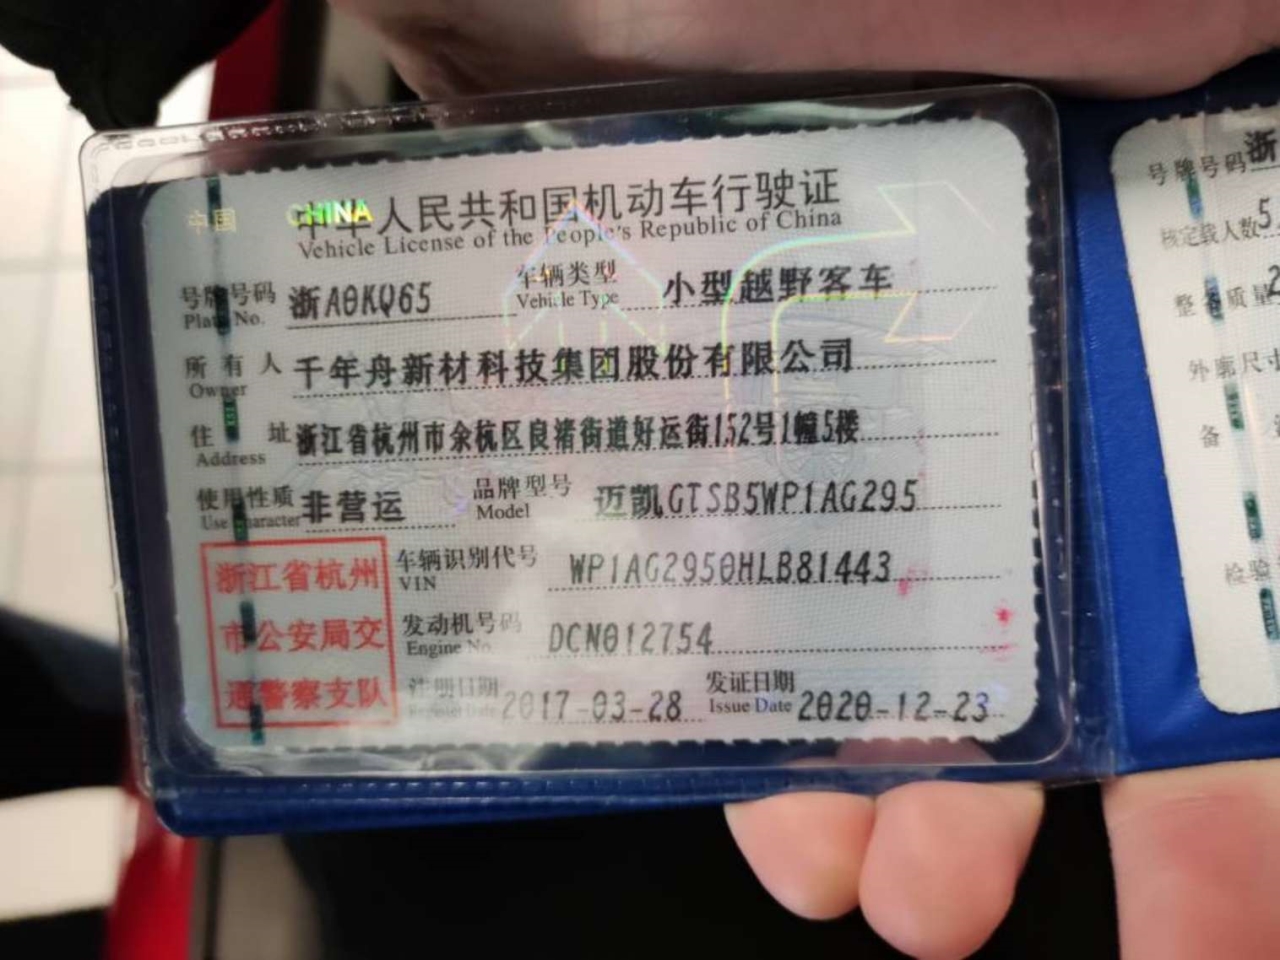 中国 CHINA
中华人民共和国机动车行驶证
Vehicle License of the People's Republic of China
号牌号码 浙A0KQ65 车辆类型 小型越野客车
Plate No. Vehicle Type
所有人 千年舟新材科技集团股份有限公司
Owner
住址 浙江省杭州市余杭区良渚街道好运街152号1幢5楼
Address
使用性质 非营运 品牌型号 迈凯GTSB5WP1AG295
Use Character Model
浙江省杭州
市公安局交
通警察支队
车辆识别代号 WP1AG2950HLB81443
VIN
发动机号码 DCN012754
Engine No.
注册日期 2017-03-28 发证日期 2020-12-23
Register Date Issue Date
号牌号码 浙
核定载人数 5
整备质量 2
外廓尺寸
备
检验